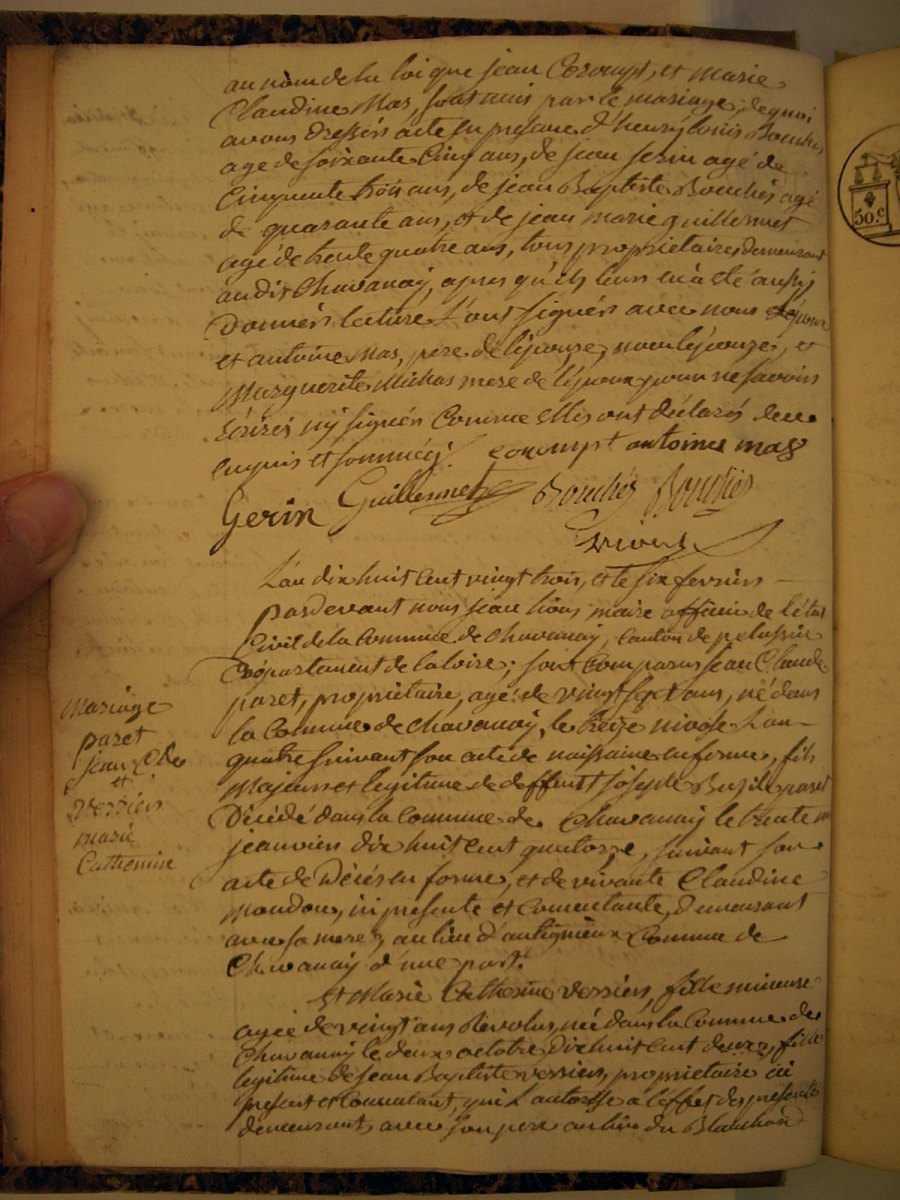 au nom de la loi que jean Corompt, et marie
Claudine Mas, sont unis par le mariage, de quoi
avons dressés acte en presence d'henry louis Bouchés
age de soixante Cinq ans, de jean gerin agé de
Cinquente trois ans, de jean Baptiste Bouchés agé
de quarante ans, et de jean marie guillermet
age de trente quatre ans, tous proprietaires demeurant
audit Chavanay, apres qu'ils leurs en a eté aussy
donnés lecture l'ont signés avec nous
et antoine Mas, pere de l'epouze, non l'epouze, et
Marguerite Michas mere de l'epoux pour ne savoir
écrire ny signer Comme elles ont déclarés de ce
enquis et sommées. corompt antoine mas
Gerin Guillermet Bouchés Bouchés
L'an dix huit cent vingt trois, et le six fevrier
pardevant nous jean maire officier de l'état
Civil de la Commune de Chavanay, Canton de pelussin
Département de la loire; sont Comparus jean Claude
paret, proprietaire, agé de vingt sept ans, né dans
la Commune de Chavanay, le treize nivose l'an
quatre suivant son acte de naissance en forme, fils
Majeur et legitime de deffunt joseph paret
Décédé dans la Commune de Chavanay le trente un
jeanvier dix huit cent quatorze, suivant son
acte de Décés en forme, et de vivante Claudine
Moudon, ici presente et Consentante, demeurant
avec sa mere, au lieu d'antignieux Commune de
Chavanay d'une part.
Mariage
paret
jean Cde
et
Verrier
marie
Catherine
Et Marie Catherine verrier, fille mineure
agée de vingt ans Révolus, née dans la Commune de
Chavanay le deux octobre Dix huit cent deux, fille
legitime de jean Baptiste verrier, proprietaire ici
present et Consentant, qui l'autorise a l'effet des presentes
demeurant avec son pere au lieu du Blanchard
50.c